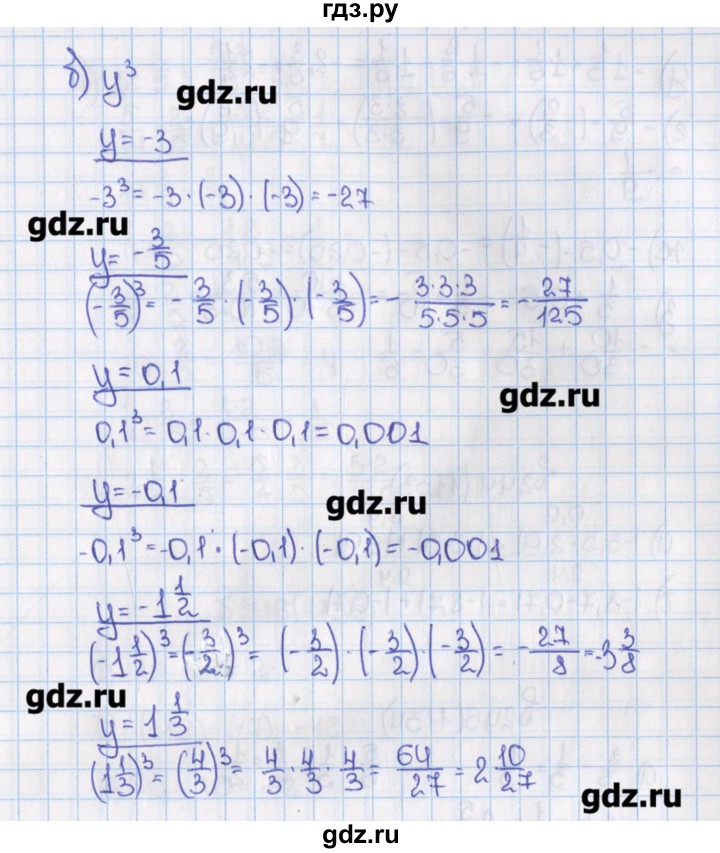 гдз.ру
б) y³
gdz.ru
y = -3
-3³ = -3 · (-3) · (-3) = -27
gdz.ru
y = -3/5
(-3/5)³ = -3/5 · (-3/5) · (-3/5) = -3·3·3/5·5·5 = -27/125
y = 0,1
gdz.ru
0,1³ = 0,1 · 0,1 · 0,1 = 0,001
y = -0,1
gdz.ru
-0,1³ = -0,1 · (-0,1) · (-0,1) = -0,001
y = -1 1/2
(-1 1/2)³ = (-3/2)³ = (-3/2) · (-3/2) · (-3/2) = -27/8 = -3 3/8
gdz.ru
y = 1 1/3
(1 1/3)³ = (4/3)³ = 4/3 · 4/3 · 4/3 = 64/27 = 2 10/27
gdz.ru
гдз.ру